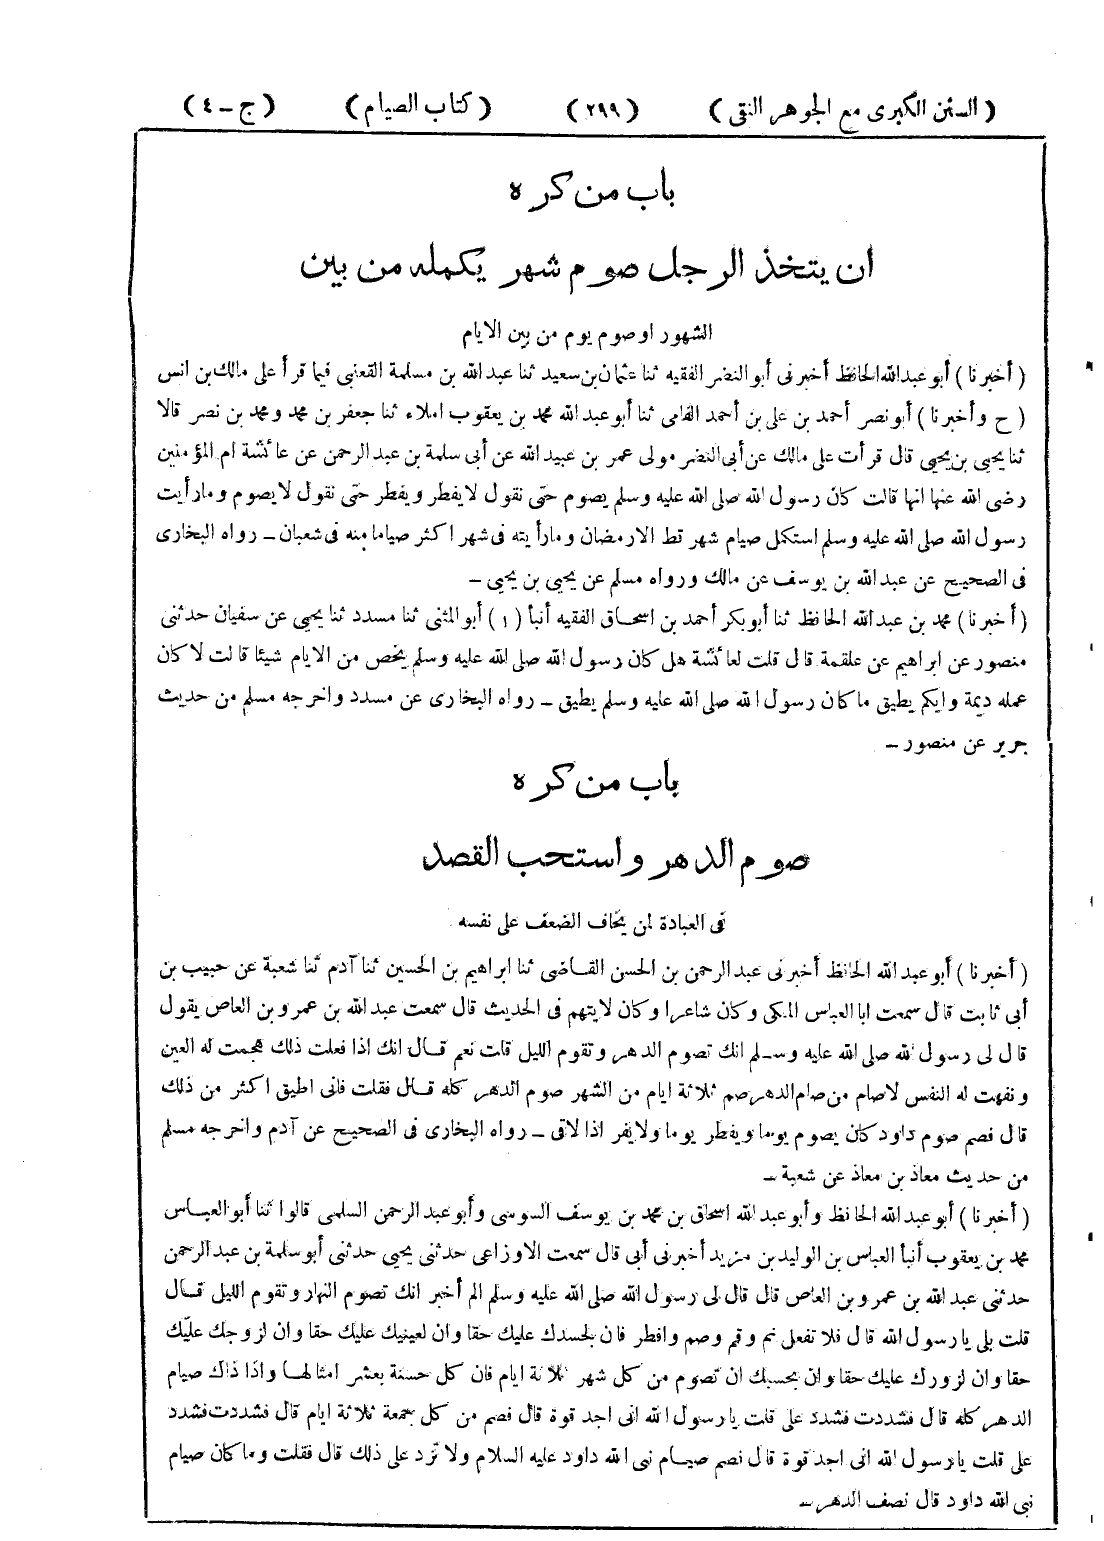 (السنن الكبرى مع الجوهر النقى) (٢٩٩) (كتاب الصيام) (ج-٤)
باب من كره
ان يتخذ الرجل صوم شهر يكمله من بين
الشهور او صوم يوم من بين الايام
(أخبرنا) أبو عبد الله الحافظ أخبرنى أبو النضر الفقيه ثنا عثمان بن سعيد ثنا عبد الله بن مسلمة القعنبى فيما قرأ على مالك بن انس
(ح وأخبرنا) أبو نصر أحمد بن على بن أحمد الفامى ثنا أبو عبد الله محمد بن يعقوب املاء ثنا جعفر بن محمد ومحمد بن نصر قالا
ثنا يحيى بن يحيى قال قرأت على مالك عن أبى النضر مولى عمر بن عبيد الله عن أبى سلمة بن عبد الرحمن عن عائشة ام المؤمنين
رضى الله عنها انها قالت كان رسول الله صلى الله عليه وسلم يصوم حتى نقول لا يفطر ويفطر حتى نقول لا يصوم وما رأيت
رسول الله صلى الله عليه وسلم استكمل صيام شهر قط الا رمضان وما رأيته فى شهر اكثر صياما منه فى شعبان - رواه البخارى
فى الصحيح عن عبد الله بن يوسف عن مالك ورواه مسلم عن يحيى بن يحيى -
(أخبرنا) محمد بن عبد الله الحافظ ثنا أبو بكر أحمد بن اسحاق الفقيه أنبأ (١) أبو المثنى ثنا مسدد ثنا يحيى عن سفيان حدثنى
منصور عن ابراهيم عن علقمة قال قلت لعائشة هل كان رسول الله صلى الله عليه وسلم يخص من الايام شيئا قالت لا كان
عمله ديمة وايكم يطيق ما كان رسول الله صلى الله عليه وسلم يطيق - رواه البخارى عن مسدد واخرجه مسلم من حديث
جرير عن منصور -
باب من كره
صوم الدهر واستحب القصد
فى العبادة لمن يخاف الضعف على نفسه
(أخبرنا) أبو عبد الله الحافظ أخبرنى عبد الرحمن بن الحسن القاضى ثنا ابراهيم بن الحسين ثنا آدم ثنا شعبة عن حبيب بن
أبى ثابت قال سمعت ابا العباس المكى وكان شاعرا وكان لا يتهم فى الحديث قال سمعت عبد الله بن عمرو بن العاص يقول
قال لى رسول الله صلى الله عليه وسلم انك تصوم الدهر وتقوم الليل قلت نعم قال انك اذا فعلت ذلك هجمت له العين
ونفهت له النفس لا صام من صام الدهر صم ثلاثة ايام من الشهر صوم الدهر كله قال فقلت فانى اطيق اكثر من ذلك
قال فصم صوم داود كان يصوم يوما ويفطر يوما ولا يفر اذا لاقى - رواه البخارى فى الصحيح عن آدم واخرجه مسلم
من حديث معاذ بن معاذ عن شعبة -
(أخبرنا) أبو عبد الله الحافظ وأبو عبد الله اسحاق بن محمد بن يوسف السوسى وأبو عبد الرحمن السلمى قالوا ثنا أبو العباس
محمد بن يعقوب أنبأ العباس بن الوليد بن مزيد أخبرنى أبى قال سمعت الاوزاعى حدثنى يحيى حدثنى أبو سلمة بن عبد الرحمن
حدثنى عبد الله بن عمرو بن العاص قال قال لى رسول الله صلى الله عليه وسلم الم أخبر انك تصوم النهار وتقوم الليل قال
قلت بلى يا رسول الله قال فلا تفعل نم وقم وصم وافطر فان لجسدك عليك حقا وان لعينيك عليك حقا وان لزوجك عليك
حقا وان لزورك عليك حقا وان بحسبك ان تصوم من كل شهر ثلاثة ايام فان كل حسنة بعشر امثالها واذا ذاك صيام
الدهر كله قال فشددت فشدد على قلت يا رسول الله انى اجد قوة قال فصم من كل جمعة ثلاثة ايام قال فشددت فشدد
على قلت يا رسول الله انى اجد قوة قال نصم صيام نبى الله داود عليه السلام ولا تزد على ذلك قال فقلت وما كان صيام
نبى الله داود قال نصف الدهر -